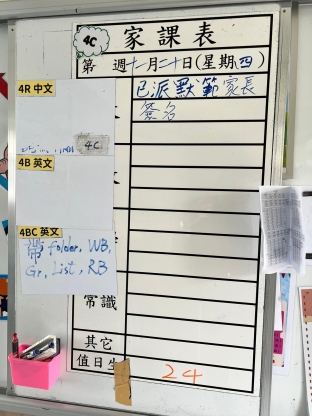 4C
家課表
第 週十一月二十日(星期四)
已派默範家長
簽名
4R 中文
4C
4B 英文
4BC 英文
帶 folder, WB,
Gr, List, RB
常識
其它
值日生
24